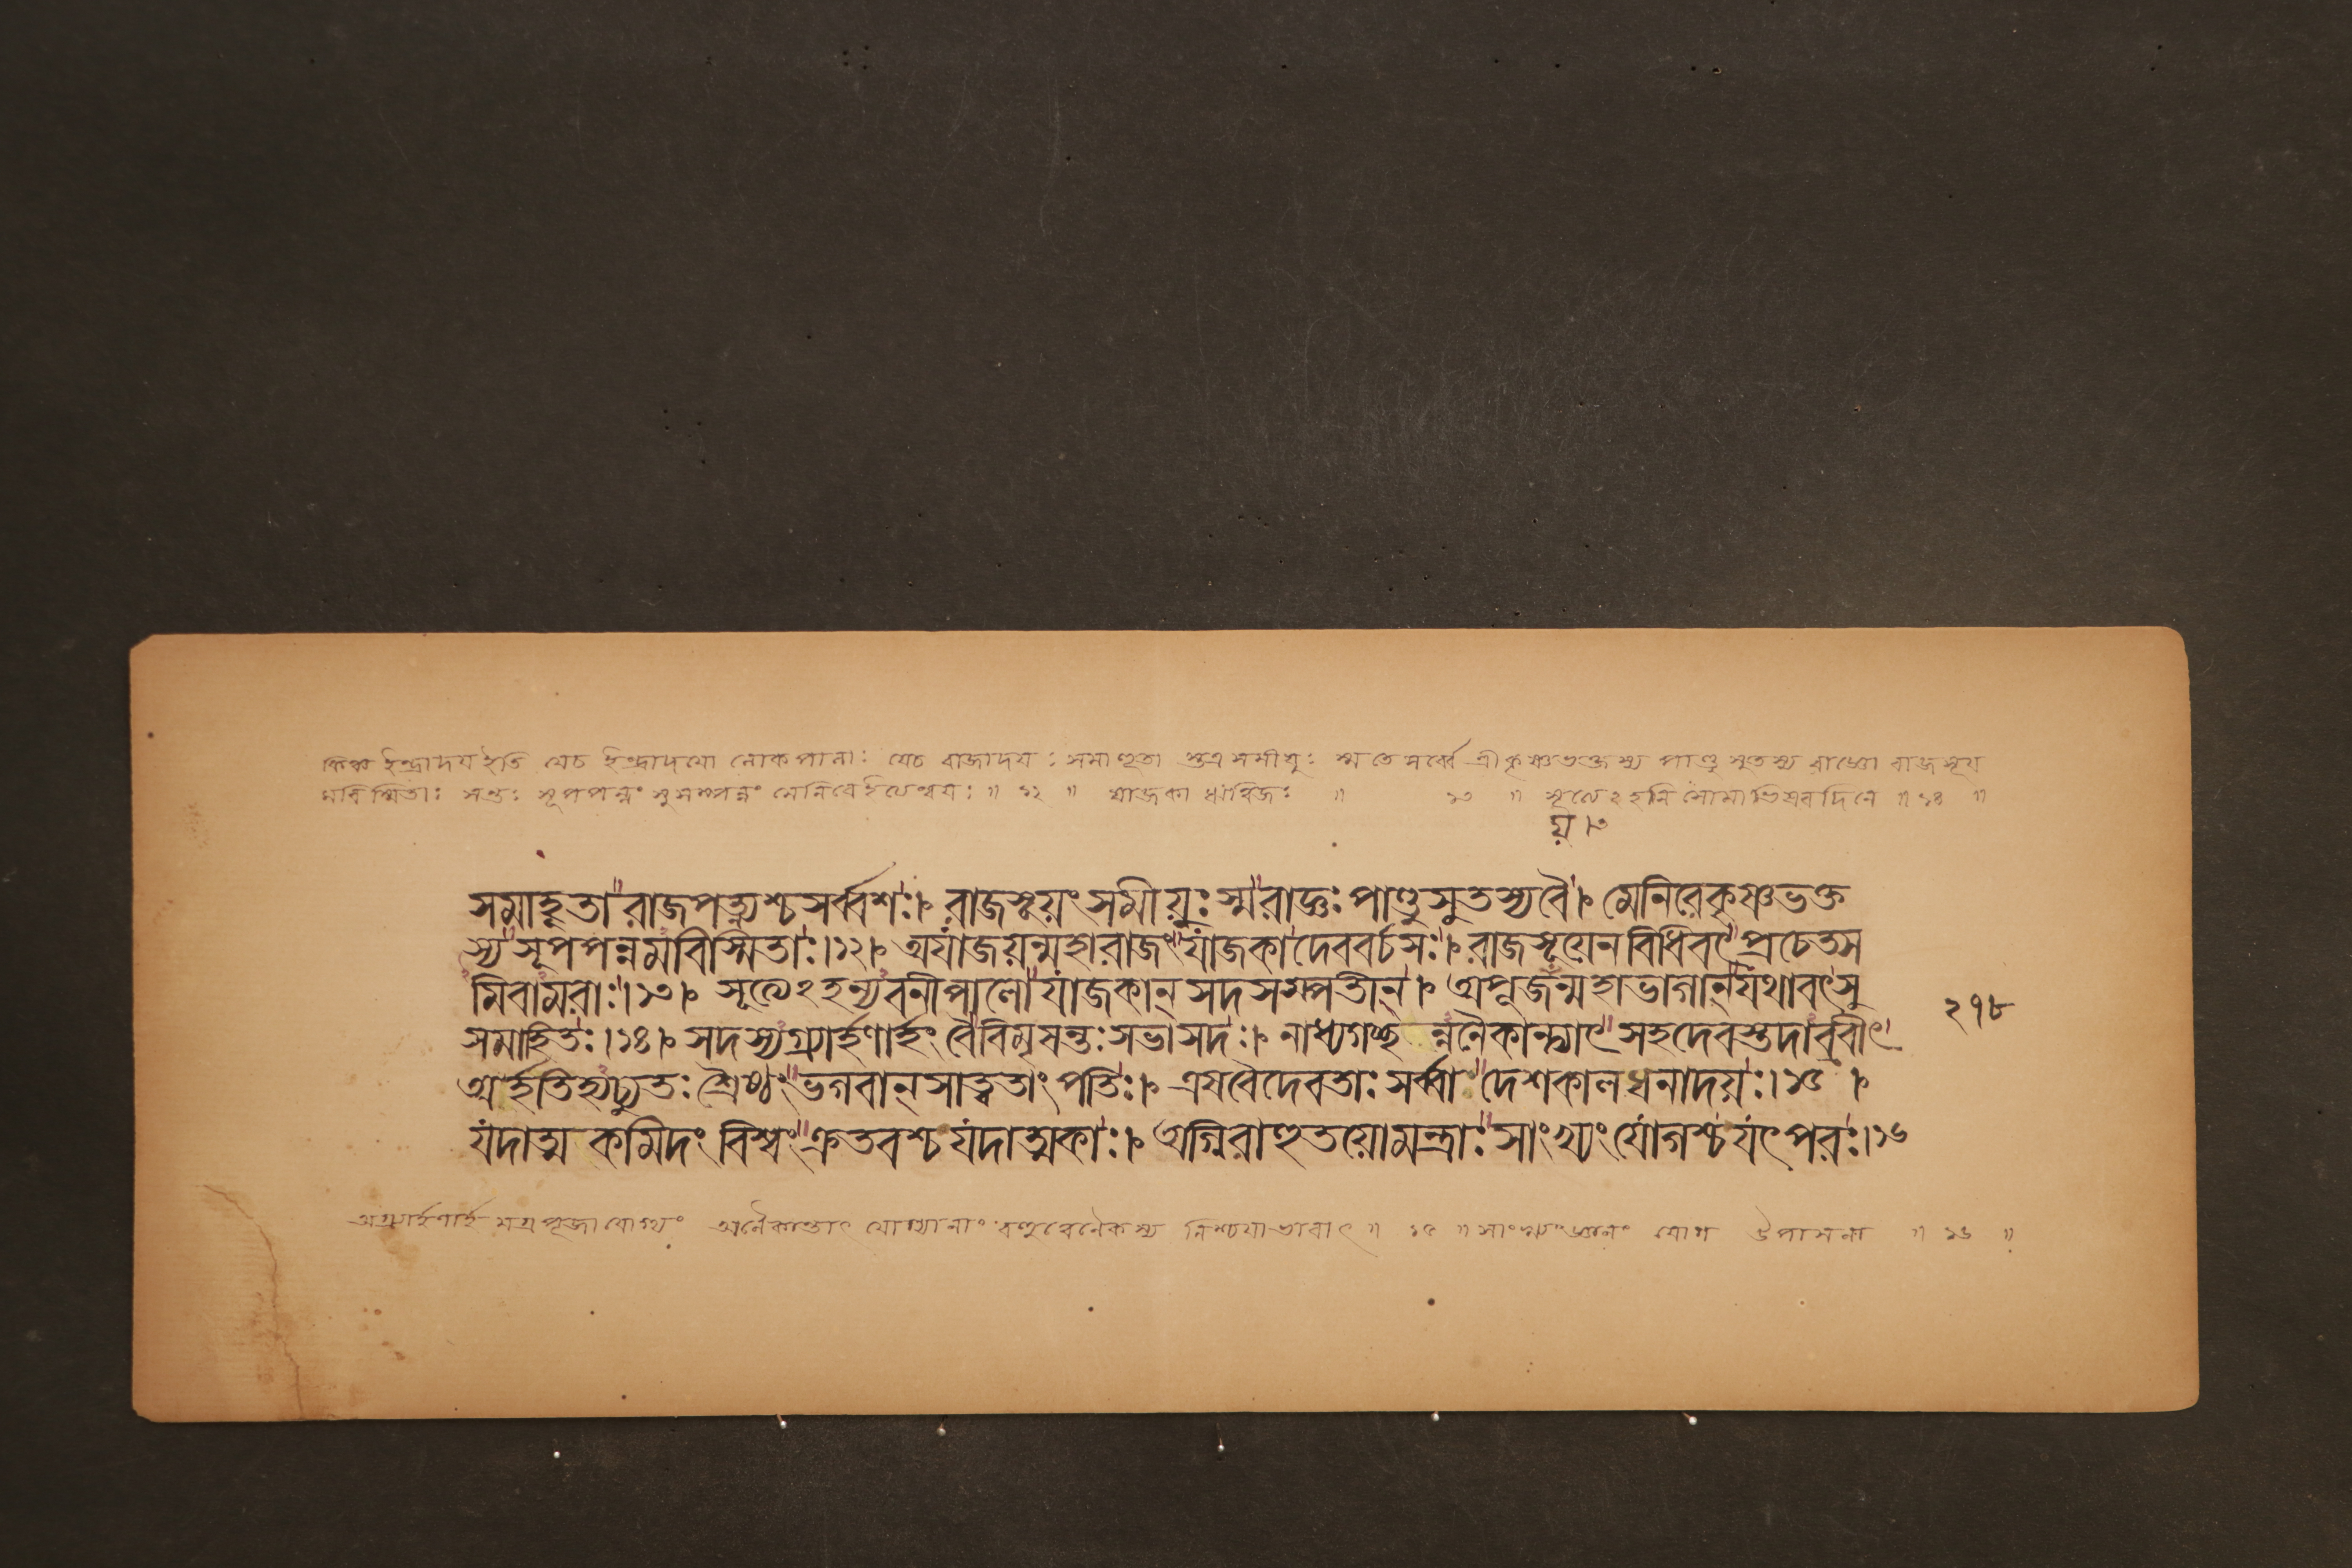 কিঞ্চ ইন্দ্রাদয ইতি যেচ ইন্দ্রাদযো লোকপালাঃ যেচ রাজাদযঃ সমাহূতা স্তত্র সমীযুঃ স্ম তে সর্ব্বে শ্রীকৃষ্ণভক্তস্য পাণ্ডুসুতস্য রাজ্ঞো রাজসূয
মবিস্মিতাঃ সন্তঃ সূপপন্নং সুসম্পন্নং মেনিরে ইত্যেন্বযঃ ॥ ১২ ॥ যাজকা ঋত্বিজঃ ॥ ১৩ ॥ সূত্যেঽহনি সোমাভিষবদিনে ॥ ১৪ ॥
য় ।৩
সমাহূতা রাজপত্ন্যশ্চসর্ব্বশঃ। রাজসূয়ং সমীয়ুঃ স্ম রাজ্ঞঃ পাণ্ডুসুতস্যবৈ। মেনিরেকৃষ্ণভক্ত
স্য সূপপন্নমবিস্মিতাঃ।১২। অযাজয়ন্মহারাজং যাজকাদেববর্চসঃ। রাজসূয়েনবিধিবৎ প্রচেতস
মিবামরাঃ।১৩। সূত্যেঽহন্যবনীপালো যাজকান্ সদসস্পতীন্। অপূজন্মহাভাগান্যথাবৎসু
সমাহিতঃ।১৪। সদস্যগ্র্যার্হণার্হং বৈবিমৃষন্তঃ সভাসদঃ। নাধ্যগচ্ছ ন্ননৈকান্ত্যাৎ সহদেবস্তদাব্রবীৎ
অর্হতিহ্যচ্যুতঃ শ্রৈষ্ঠ্যং ভগবান্ সাত্বতাং পতিঃ। এষবৈদেবতাঃ সর্ব্বাঃ দেশকালধনাদয়ঃ।১৫।
যদাত্ম কমিদং বিশ্বং ক্রতবশ্চ যদাত্মকাঃ। অগ্নিরাহুতয়োমন্ত্রাঃ সাংখ্যং যোগশ্চ যৎপরঃ।১৬
২১৮
অগ্র্যার্হণার্হ মগ্রপূজাযোগ্যং অনৈকান্ত্যাৎ যোগ্যানাং বহুত্বেনৈকস্য নিশ্চযাভাবাৎ ॥ ১৫ ॥ সাংখ্যং জ্ঞানং যোগ উপাসনা ॥ ১৬ ॥